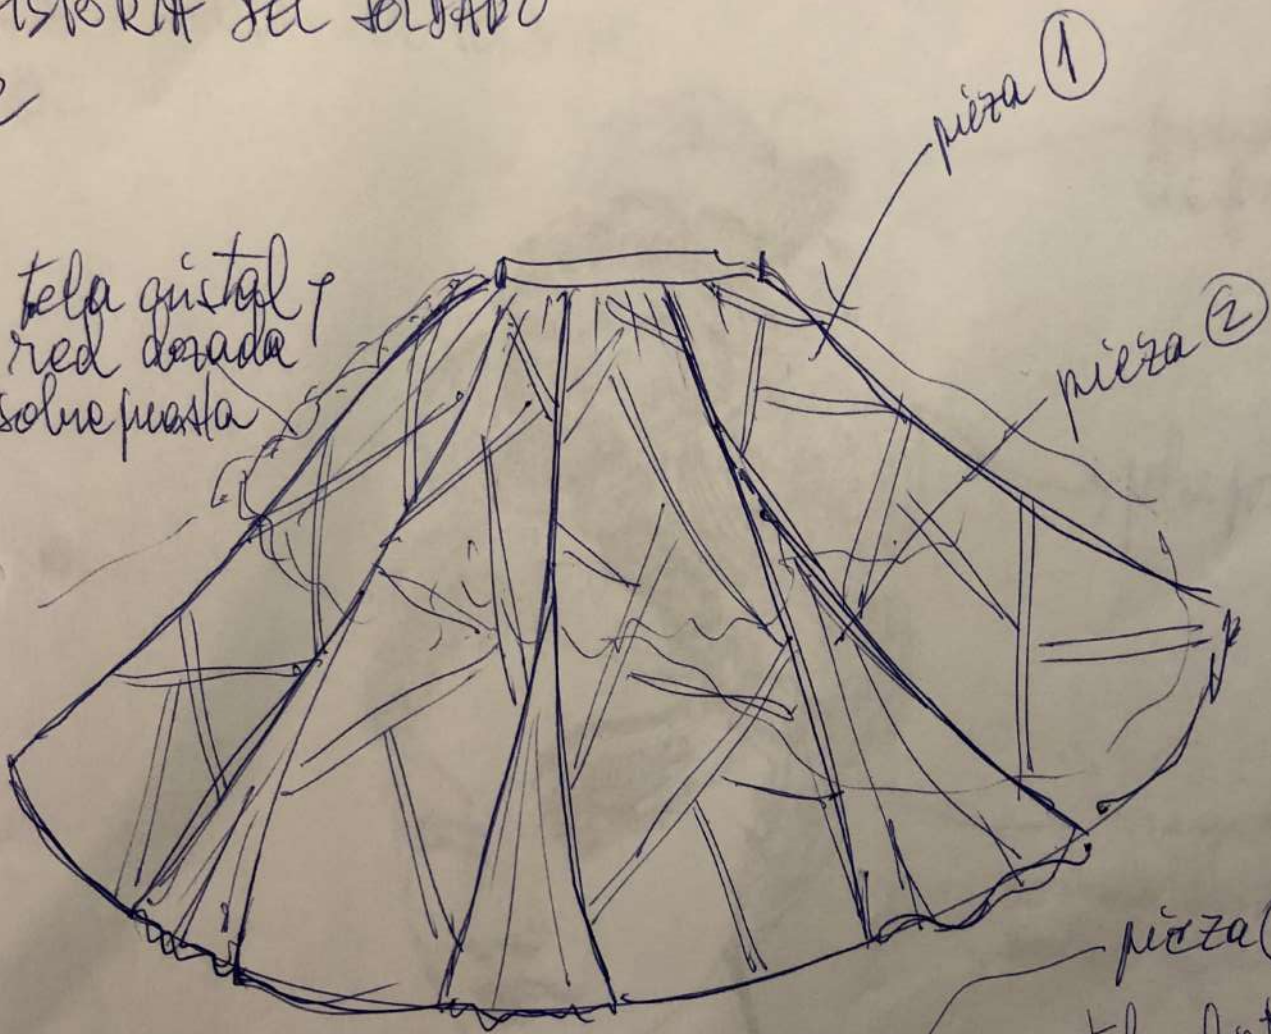 HISTORIA DEL SOLDADO
pieza ①
tela cristal y
red dorada
sobrepuesta
pieza ②
pieza